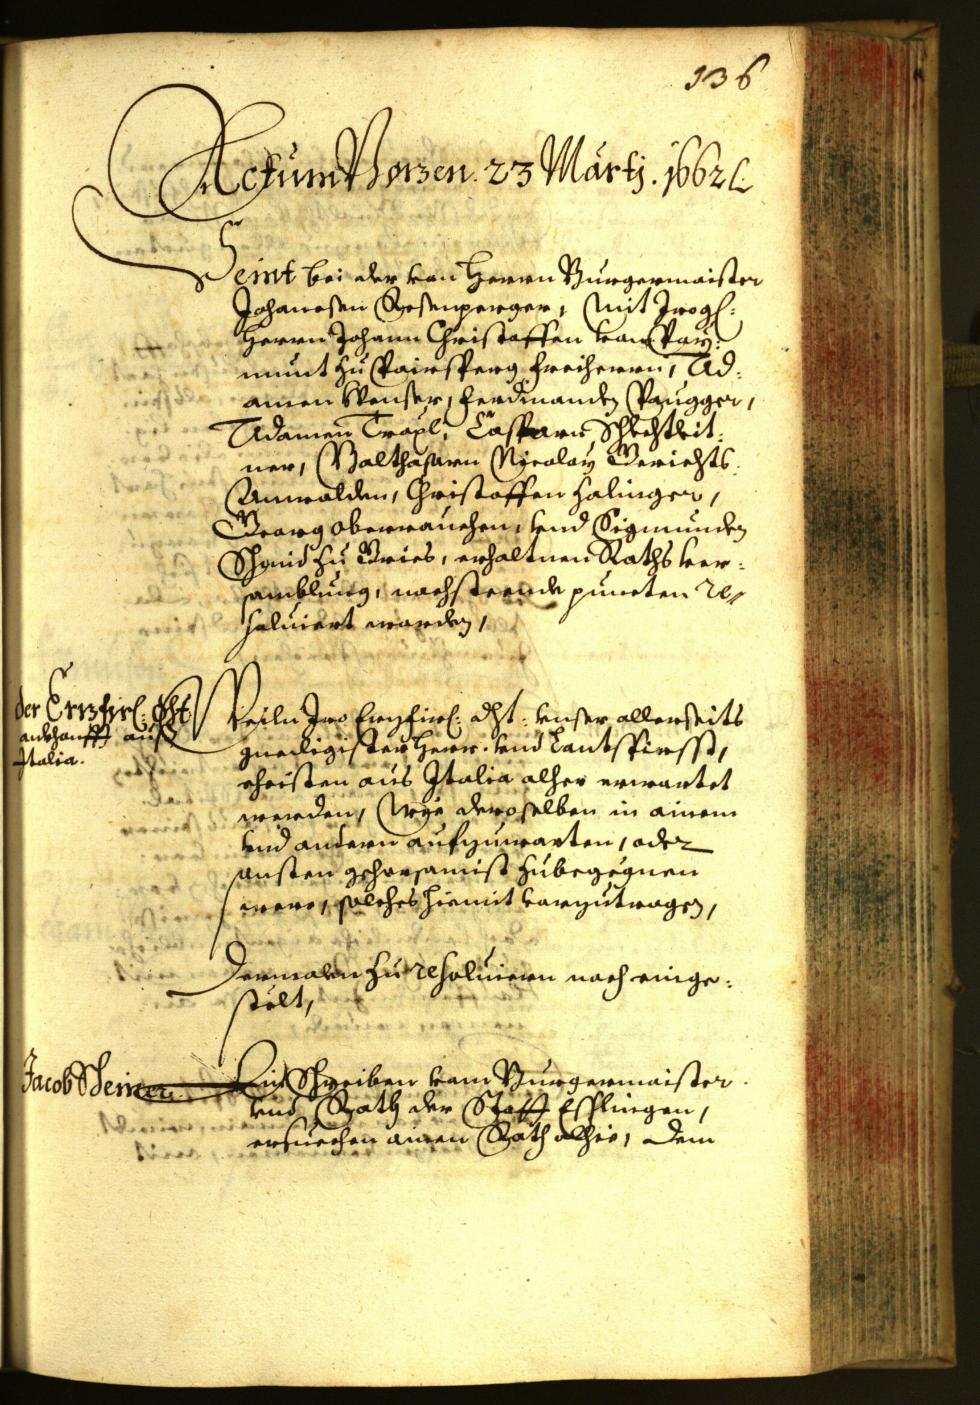 136
Actum Bozen. 23 Martj. 1662 ⁊c:
Seint bei der von Herrn Burgermaister
Johannsen Rosenperger, mit Irog:
Herrn Johann Christoffen von Pay:
munt zu Pairsperg Freiherrn, Ad:
amen Wenser, Ferdinanden Paugger,
Adamen Trapl, Casparn Schlechtleit:
ner, Balthasarn Nicolay Gerichts
Anwalden, Christoffen Halinger,
Georg Oberrauchen, vnd Sigmunden
Schmid zu Gries, erhaltnen Raths ver:
samblung, nachsteende puncten re
soluiert worden,
der Erzfirl: dht
ankhunfft auß
Italia.
Weiln Iro Erzfirl: dht: vnser allerseits
gnedigister Herr vnd Lantsfirsst,
ehisten aus Italia alher erwartet
werden, Wie deroselben in ainem
vnd andern aufzuwarten, oder
onsten gehorsamist zubegegnen
were, solches hiemit vorzutragen,
Dermalen zu resoluiern noch einge:
stelt,
Jacob Steiner
Ein Schreiben vom Burgermaister
vnd Rath der Statt Esslingen,
ersuechen ainen Rath alhie, dem